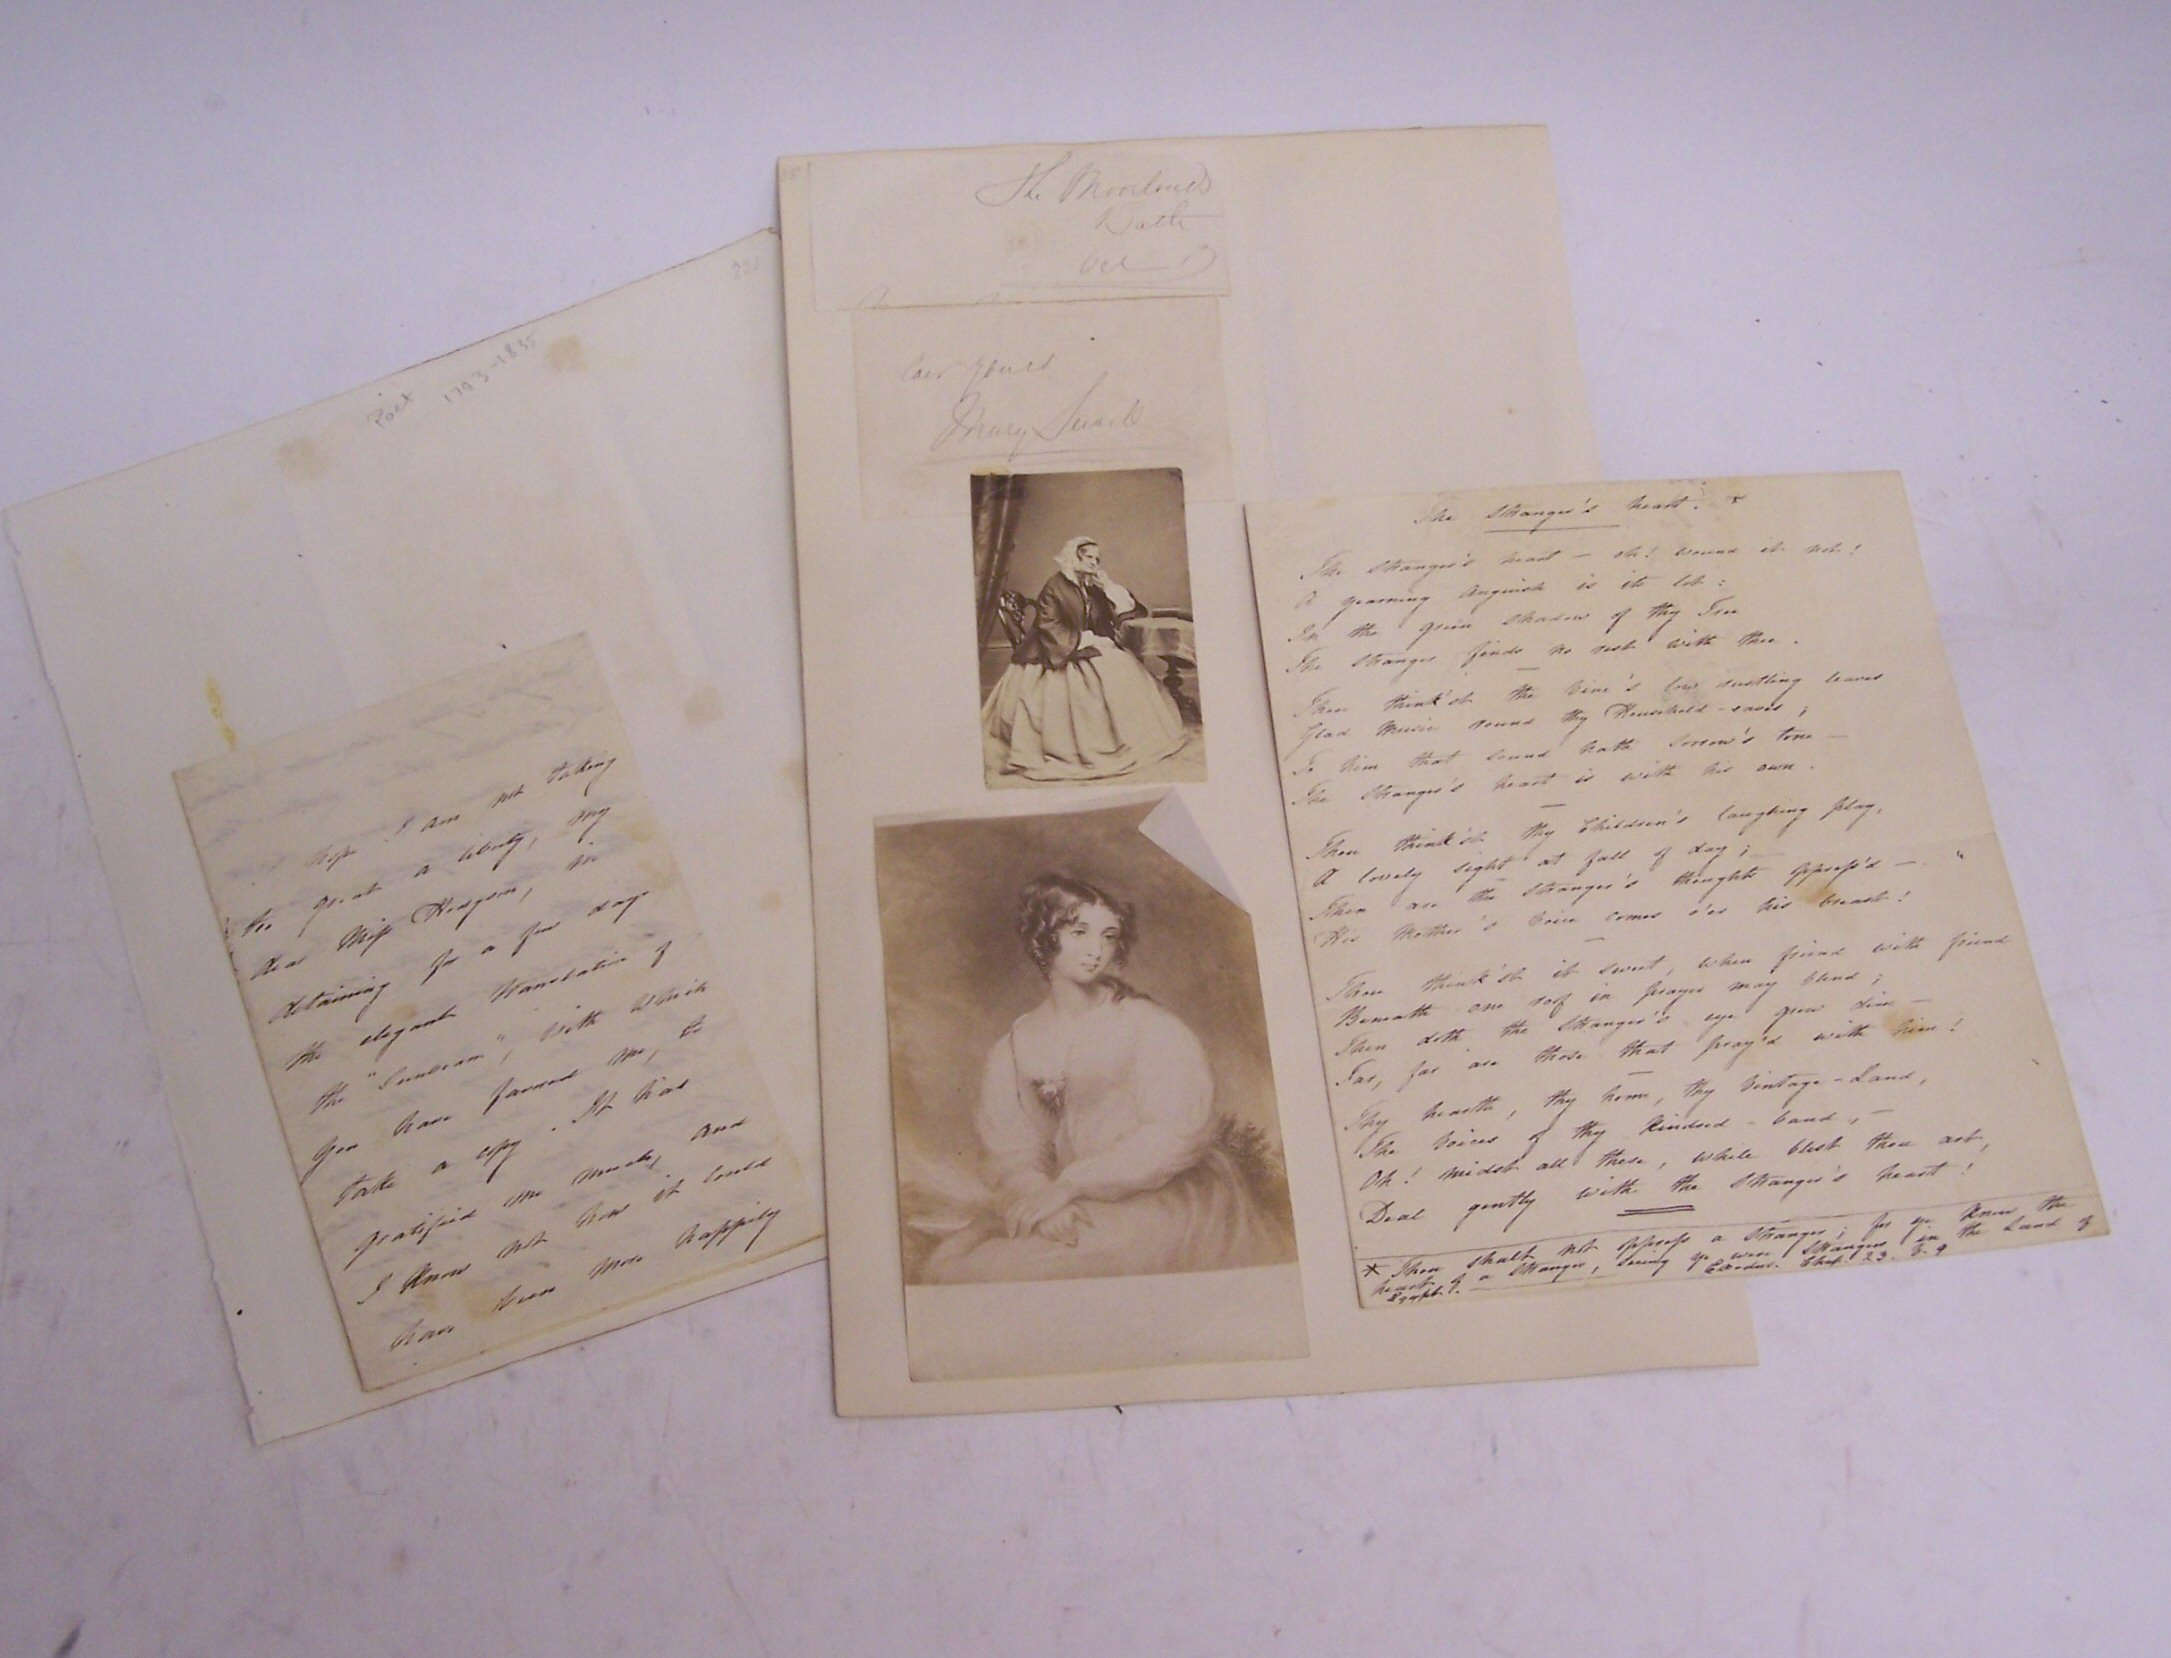 221
Poet 1793-1835
I hope I am not taking
too great a liberty, my
dear Miss Hodgson, in
detaining for a few days
the elegant translation of
the "Sunbeam", with which
you have favored me, to
take a copy. It has
gratified me much, and
I know not how it could
have been more happily
The
Oct 17
Ever yours
Mary
The Stranger's heart. *
The Stranger's heart — oh! wound it not!
A yearning anguish is its lot:
In the green shadow of thy Tree
The Stranger finds no rest with thee.
Thou think'st the Vine's low rustling leaves
Glad Music round thy Household-eaves;
To him that sound hath Sorrow's tone —
The Stranger's heart is with his own.
Thou think'st thy Children's laughing play,
A lovely sight at fall of day; —
Then are the Stranger's thoughts oppress'd —
His Mother's voice comes o'er his breast!
Thou think'st it sweet, when friend with friend
Beneath one roof in prayer may blend;
Then doth the Stranger's eye grow dim —
Far, far are those that pray'd with him!
Thy hearth, thy home, thy Vintage-Land,
The Voices of thy Kindred-band, —
Oh! midst all these, while blest thou art,
Deal gently with the Stranger's heart!
* Thou shalt not oppress a Stranger; for ye know the
heart of a Stranger, seeing ye were Strangers in the Land of
Egypt. Exodus. Chap. 23. v. 9